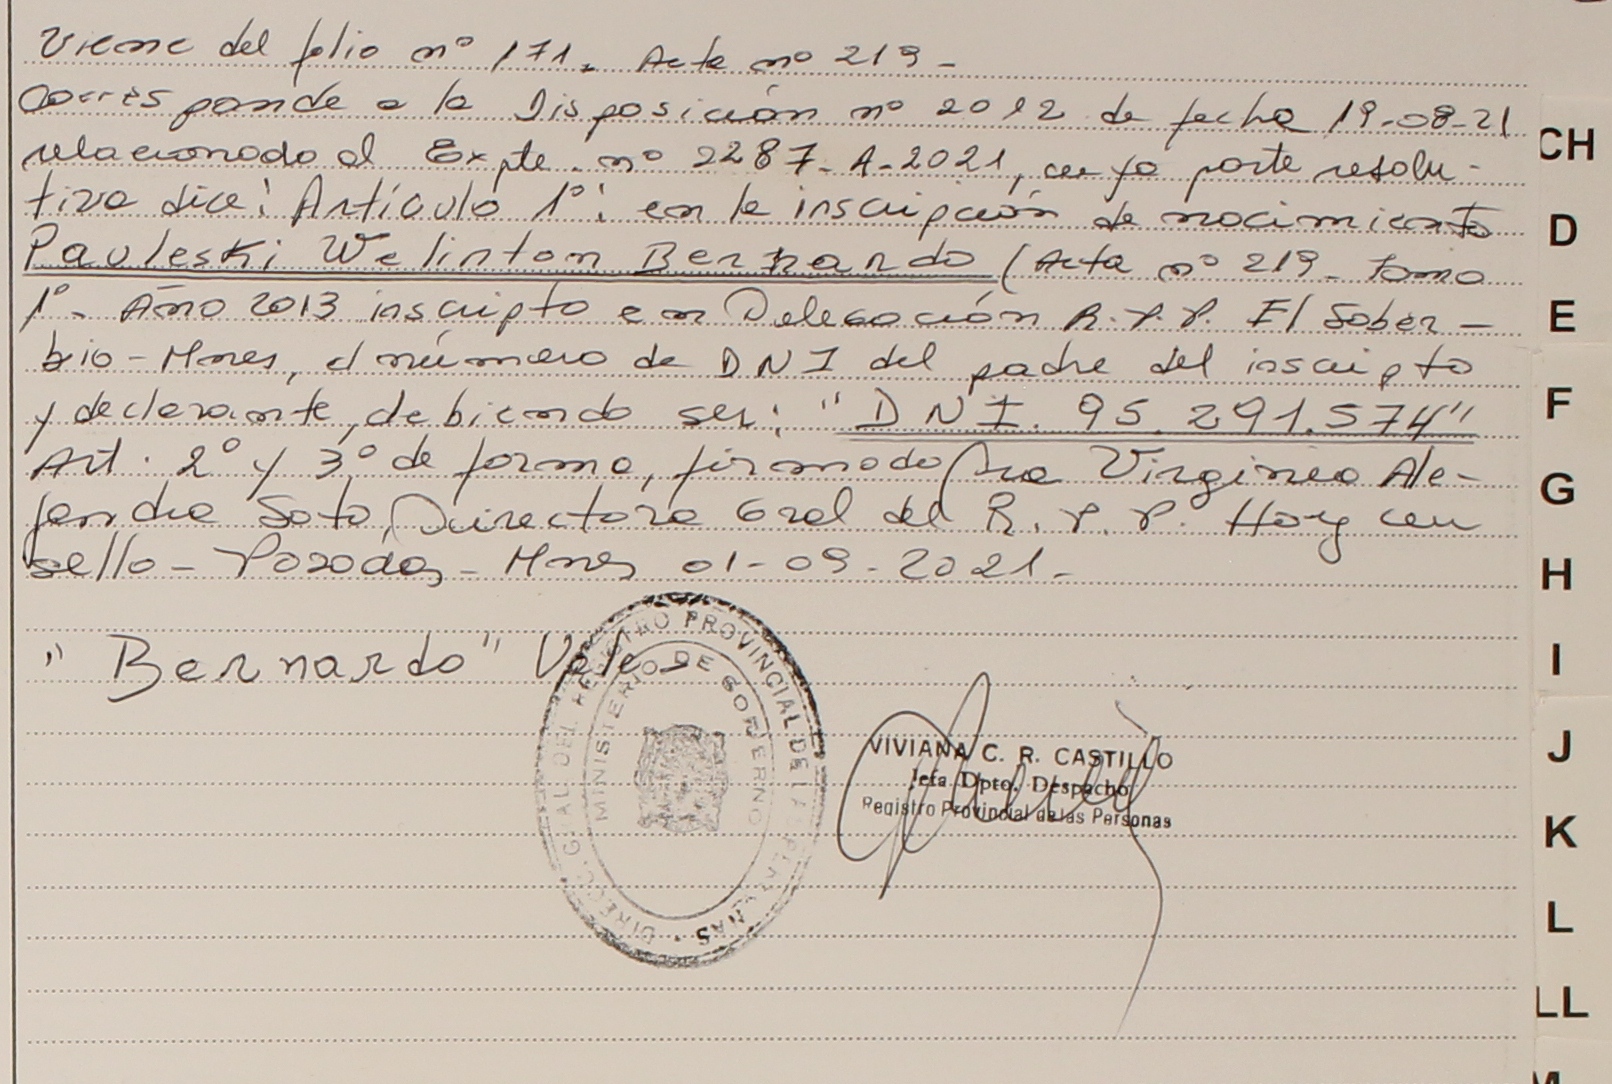 Viene del folio nº 171. Acta nº 219 -
Corresponde a la Disposición nº 2012 de fecha 19-08-21
relacionado al Expte. nº 2287-A-2021, cuya parte resolu-
tiva dice: Artículo 1º: en la inscripción de nacimiento
Pauleski Welinton Bernardo (Acta nº 219 - Tomo
1º - Año 2013 inscripto en Delegación R.P.P. El Sober-
bio - Mnes, el número de DNI del padre del inscripto
y declarante, debiendo ser: "DNI. 95.291.574"
Art. 2º y 3º de forma, firmado Dra Virginia Ale-
jandra Soto, Directora Gral del R.P.P. Hay un
sello - Posadas - Mnes 01-09-2021.-
"Bernardo" Vale
DIRECC. GRAL. DEL REGISTRO PROVINCIAL DE LAS PERSONAS
MINISTERIO DE GOBIERNO
VIVIANA C. R. CASTILLO
Jefa Dpto. Despacho
Registro Provincial de las Personas
CH
D
E
F
G
H
I
J
K
L
LL
M